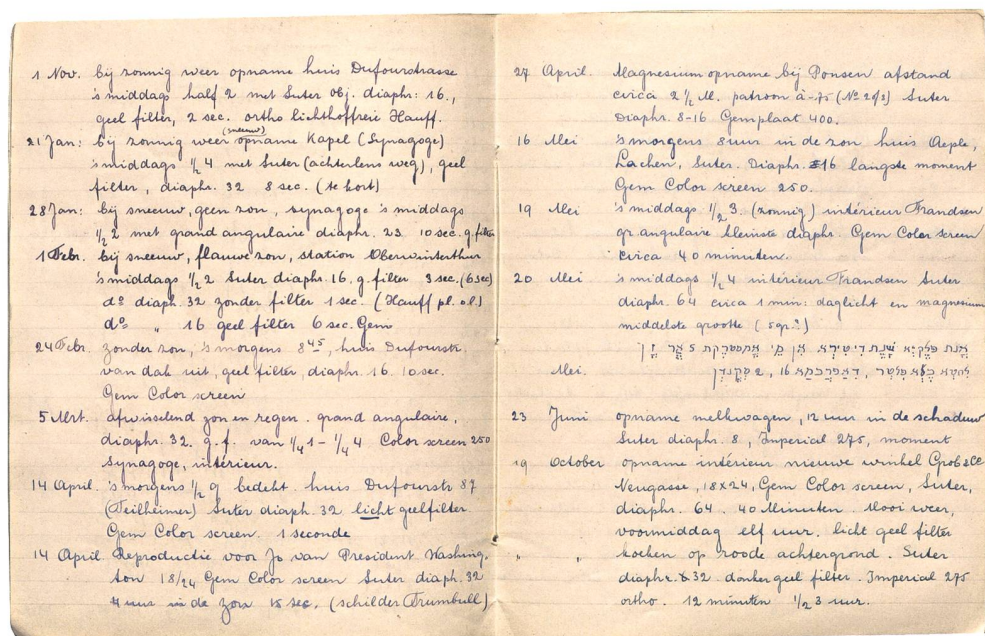 1 Nov. bij zonnig weer opname huis Dufourstrasse
's middags half 2 met Suter obj. diaphr: 16.,
geel filter, 2 sec. ortho lichthoffreie Hauff.
(sneeuw)
21 Jan: bij zonnig weer opname Kapel (Synagoge)
's middags ½ 4 met Suter (achterlens weg), geel
filter, diaphr. 32 8 sec. (te kort)
28 Jan: bij sneeuw, geen zon, synagoge 's middags
½ 2 met grand angulaire diaphr. 23 10 sec. g. filter
1 Febr. bij sneeuw, flauwe zon, station Oberwinterthur
's middags ½ 2 Suter diaphr. 16. g. filter 3 sec. (6 sec)
do diaph. 32 zonder filter 1 sec. (Hauff pl. ol.)
do " 16 geel filter 6 sec. Gem
24 Febr. zonder zon, 's morgens 8 45, huis Dufourstr.
van dak uit, geel filter, diaphr. 16. 10 sec.
Gem Color screen
5 Mrt. afwisselend zon en regen. grand angulaire,
diaphr. 32. g. f. van ¼ 1 - ¼ Color screen 250
synagoge, intérieur.
14 April 's morgens ½ 9 bedekt huis Dufourstr 87
(Teilheimer) Suter diaph. 32 licht geelfilter.
Gem Color screen. 1 seconde
14 April Reproductie voor Jo van President Washing.
ton 18/24 Gem Color screen Suter diaph. 32
4 uur in de zon 15 sec. (schilder Trumbull)
27 April. Magnesium opname bij Ponsen afstand
circa 2 ½ M. patroon à -75 (No 2) Suter
Diaphr. 8-16 Gemplaat 400.
16 Mei 's morgens 8 uur in de zon huis Aeple,
Lachen, Suter. Diaphr. 16 langste moment
Gem Color screen 250.
19 Mei 's middags ½ 3. (zonnig) intérieur Frandsen
gr. angulaire kleinste diaphr. Gem Color screen
circa 40 minuten.
20 Mei 's middags ½ 4 intérieur Frandsen Suter
diaphr. 64 circa 1 min: daglicht en magnesium
middelste grootte (5 gr.?)
Mei. 16, 2
23 Juni opname melkwagen, 12 uur in de schaduw
Suter diaphr. 8, Imperial 275, moment
19 October opname intérieur nieuwe winkel Grob & Co
Neugasse, 18x24, Gem Color screen, Suter,
diaphr. 64. 40 Minuten. Mooi weer,
voormiddag elf uur. licht geel filter
" " koeken op roode achtergrond. Suter
diaphr. 32 donker geel filter. Imperial 275
ortho. 12 minuten ½ 3 uur.